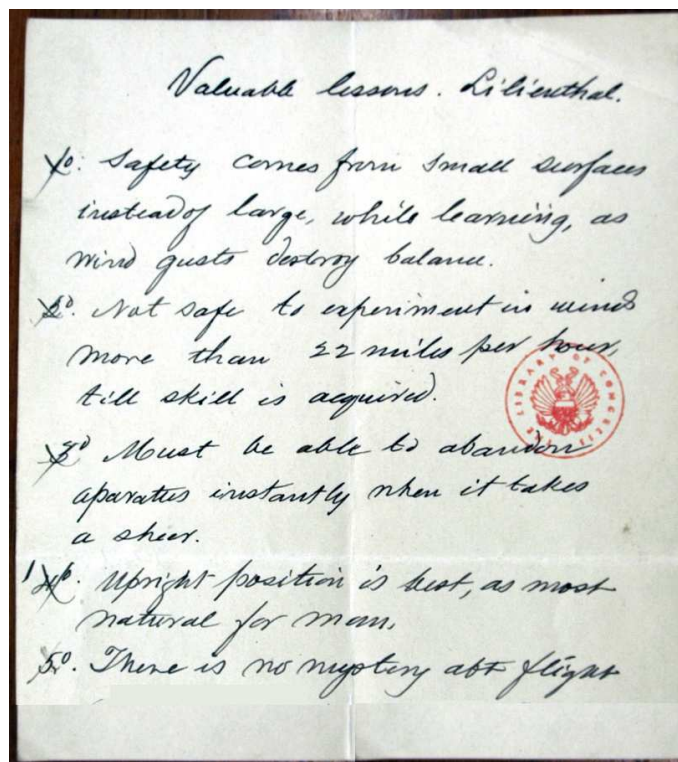 Valuable lessons. Lilienthal.
1o. Safety comes from small surfaces
instead of large, while learning, as
wind gusts destroy balance.
2o. Not safe to experiment in winds
more than 22 miles per hour,
till skill is acquired.
3o Must be able to abandon
aparatus instantly when it takes
a sheer.
Upright position is best, as most
natural for man.
5o. There is no mystery abt flight
THE LIBRARY OF CONGRESS